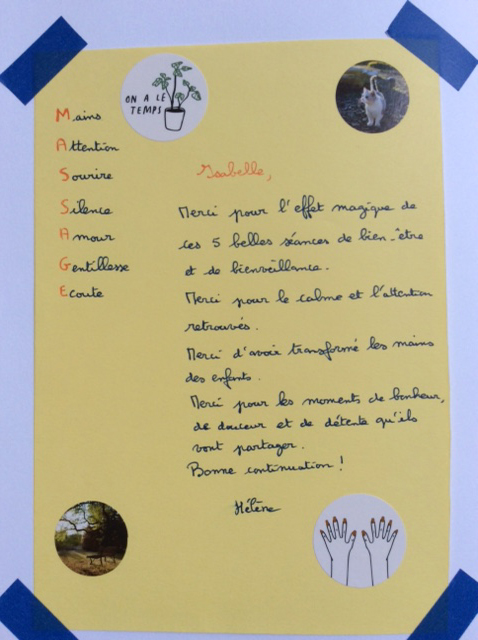 ON A LE
TEMPS
Mains
Attention
Sourire
Silence
Amour
Gentillesse
Ecoute
Isabelle,
Merci pour l'effet magique de
ces 5 belles séances de bien-être
et de bienveillance.
Merci pour le calme et l'attention
retrouvés.
Merci d'avoir transformé les mains
des enfants.
Merci pour les moments de bonheur,
de douceur et de détente qu'ils
vont partager.
Bonne continuation !
Hélène